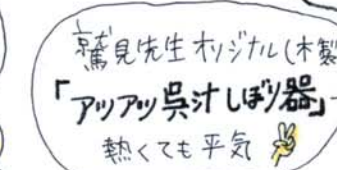 鷲見先生オリジナル(木製
「アツアツ呉汁しぼり器」
熱くても平気